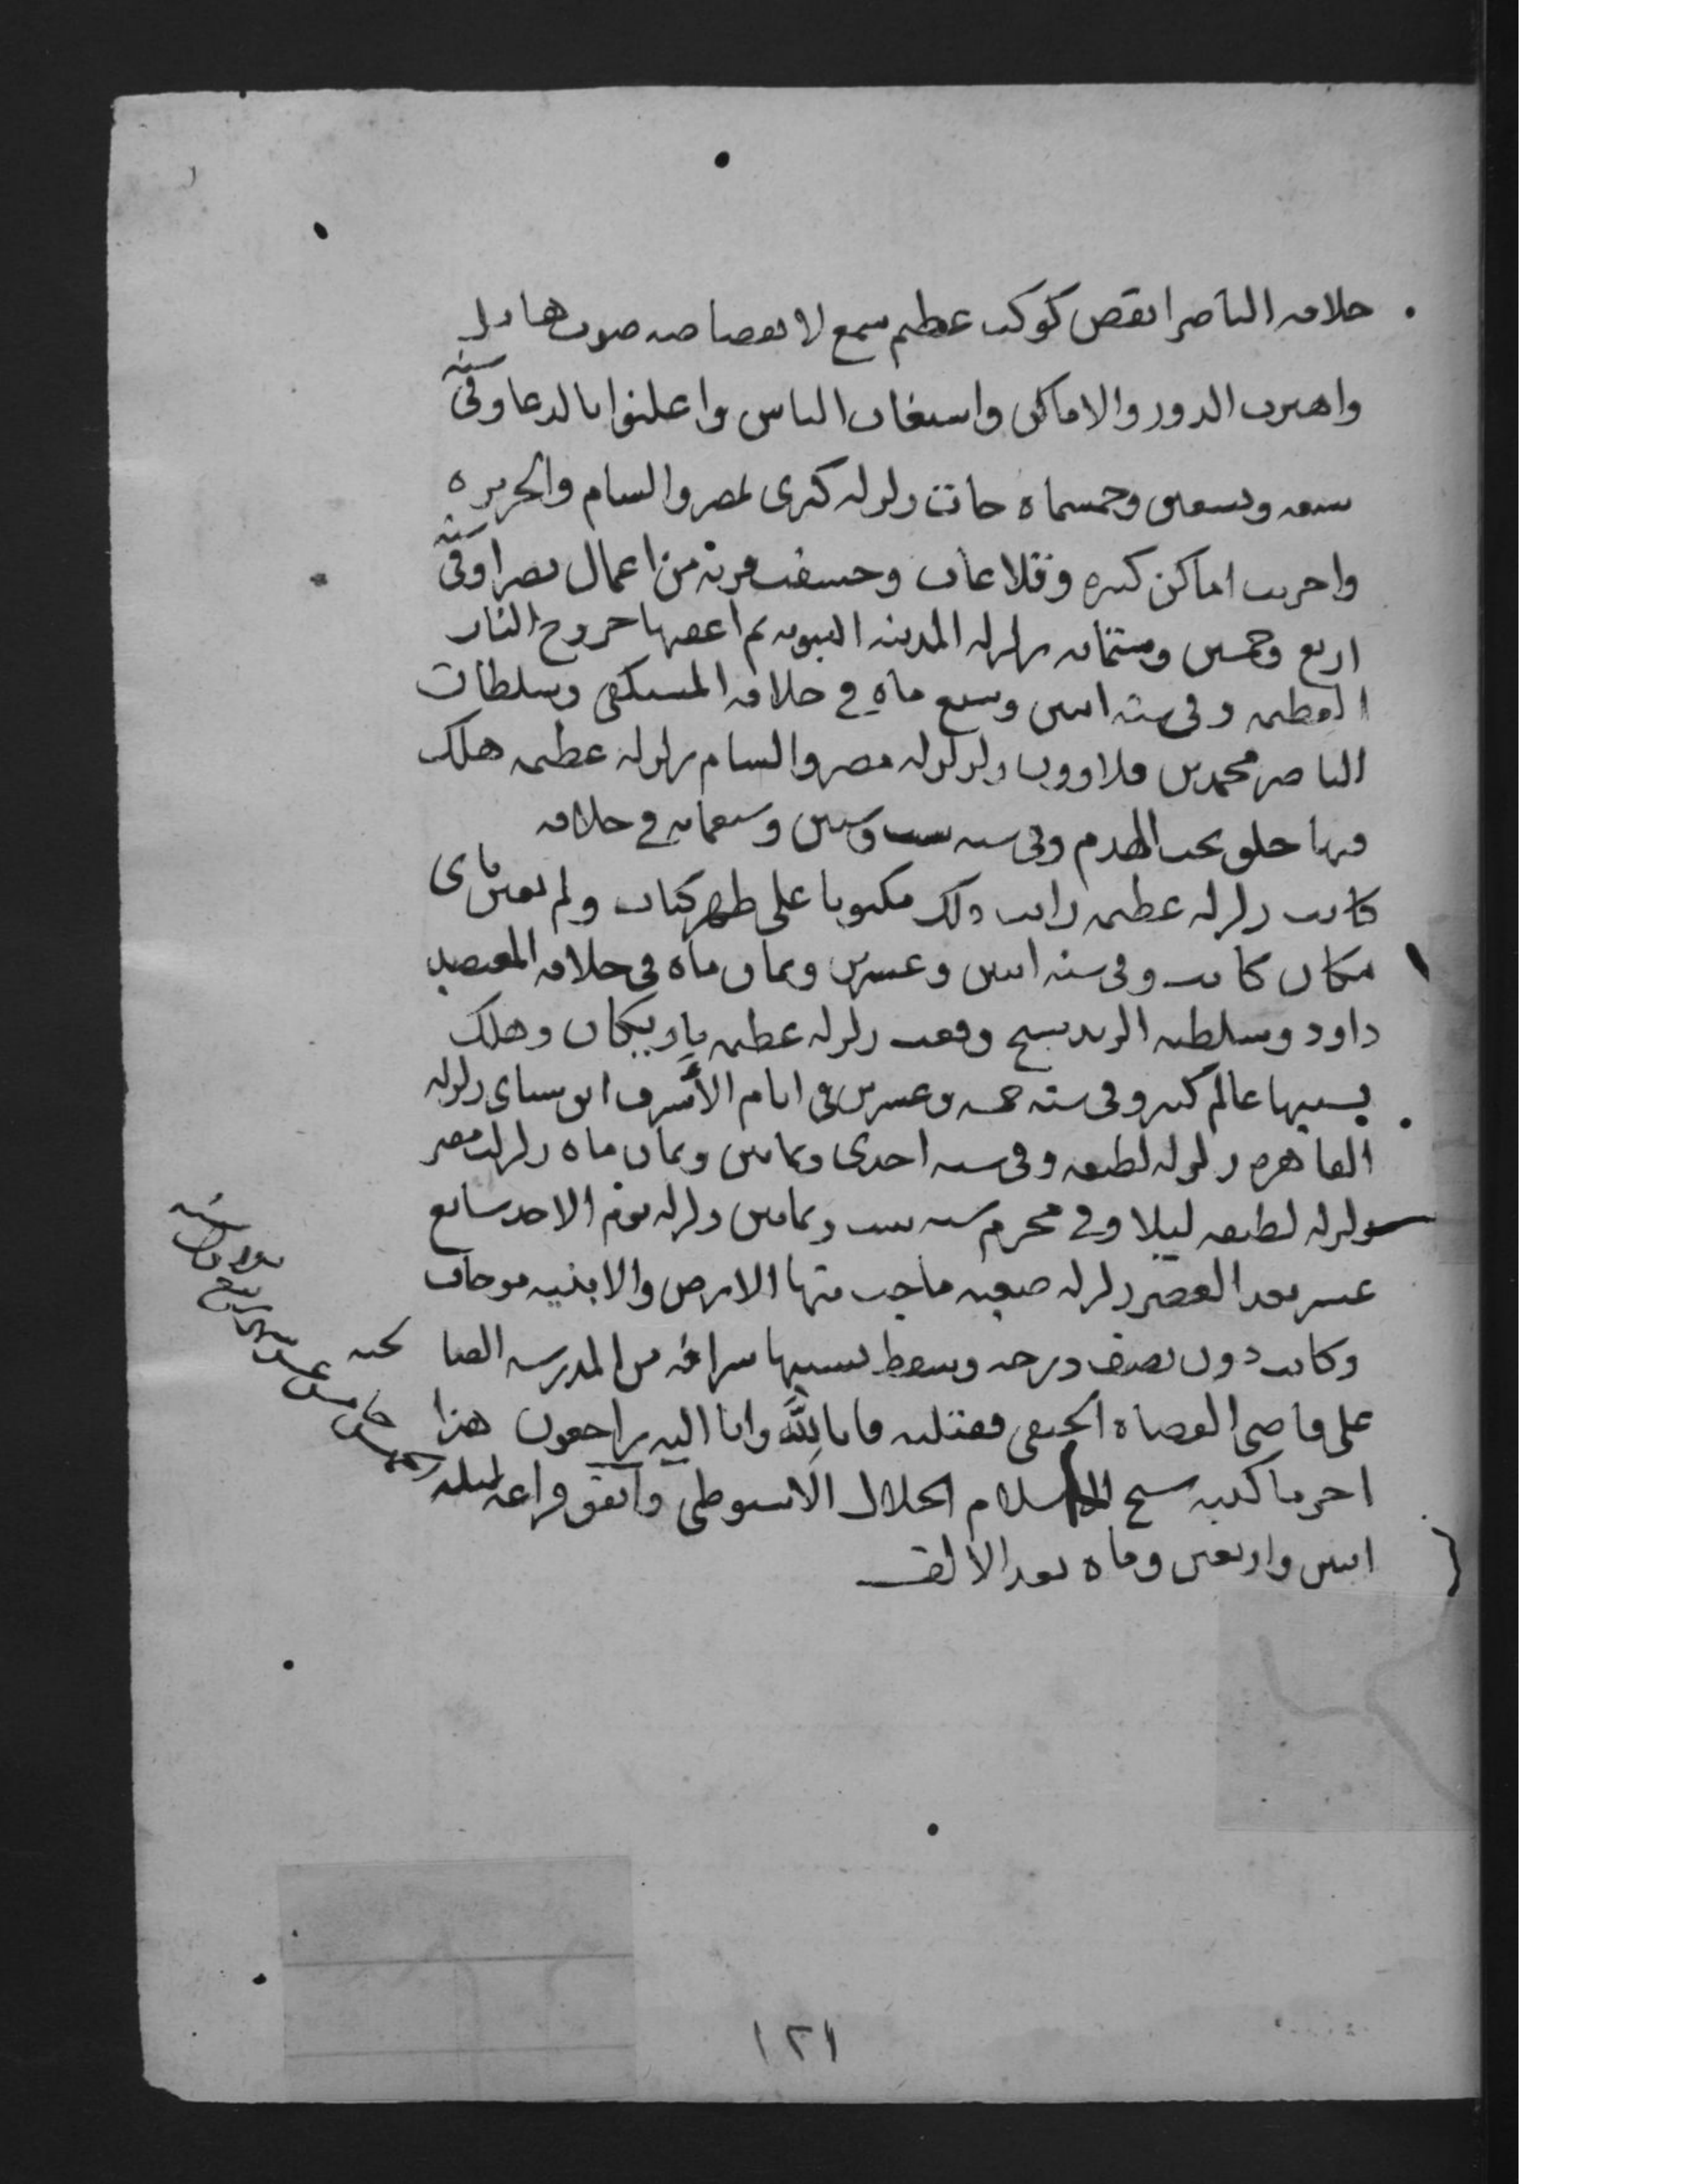 خلافه الناصر انقض كوكب عظيم سمع لانقضاضه صوت هايل
واهتزت الدور والاماكن واستغاث الناس واعلنوا بالدعا وفي سنة
سبعه وتسعين وخمسماه جات زلزله كبرى لمصر والشام والجزيره
واخربت اماكن كثيره وقلاعات وخسفت قرية من اعمال بصرا وفي سنة
اربع وخمسين وستمايه زلزله المدينه النبويه ثم اعقبها خروج النار
العظيمه وفي سنه اثنين وسبع ماه في خلافه المستكفي وسلطان
الناصر محمد بن قلاوون زلزله مصر والشام زلزله عظيمه هلك
فيها خلق تحت الهدم وفي سنه ست وستين وسبعمايه في خلافه
كانت زلزله عظيمه رايت ذلك مكتوبا على ظهر كتاب ولم يعين باي
مكان كانت وفي سنه اثنين وعشرين وثمان ماه في خلافه المعتضد
داود وسلطنه وقعت زلزله عظيمه وهلك
بسببها عالم كثير وفي سنه خمسه وعشرين في ايام الأشرف زلزله
القاهره زلزله لطيفه وفي سنه احدى وثمانين وثمان ماه زلزلت مصر
زلزله لطيفه ليلا وفي محرم سنه ست وثمانين زلزله يوم الاحد سابع
عشر بعد العصر زلزله صعبه ماجت منها الارض والابنيه موجات
وكانت دون نصف درجه وسقط بسببها شرافه من المدرسه الصالحيه
على قاضي القضاه الحنفي فقتلته فانا لله وانا اليه راجعون هذا
اخر ما كتبه شيخ الاسلام الجلال الاسيوطي واتفق قراءه ليله
الخميس خامس عشر شهر ربيع الاول سنه
اثنين واربعين وماه بعد الالف
١٢١